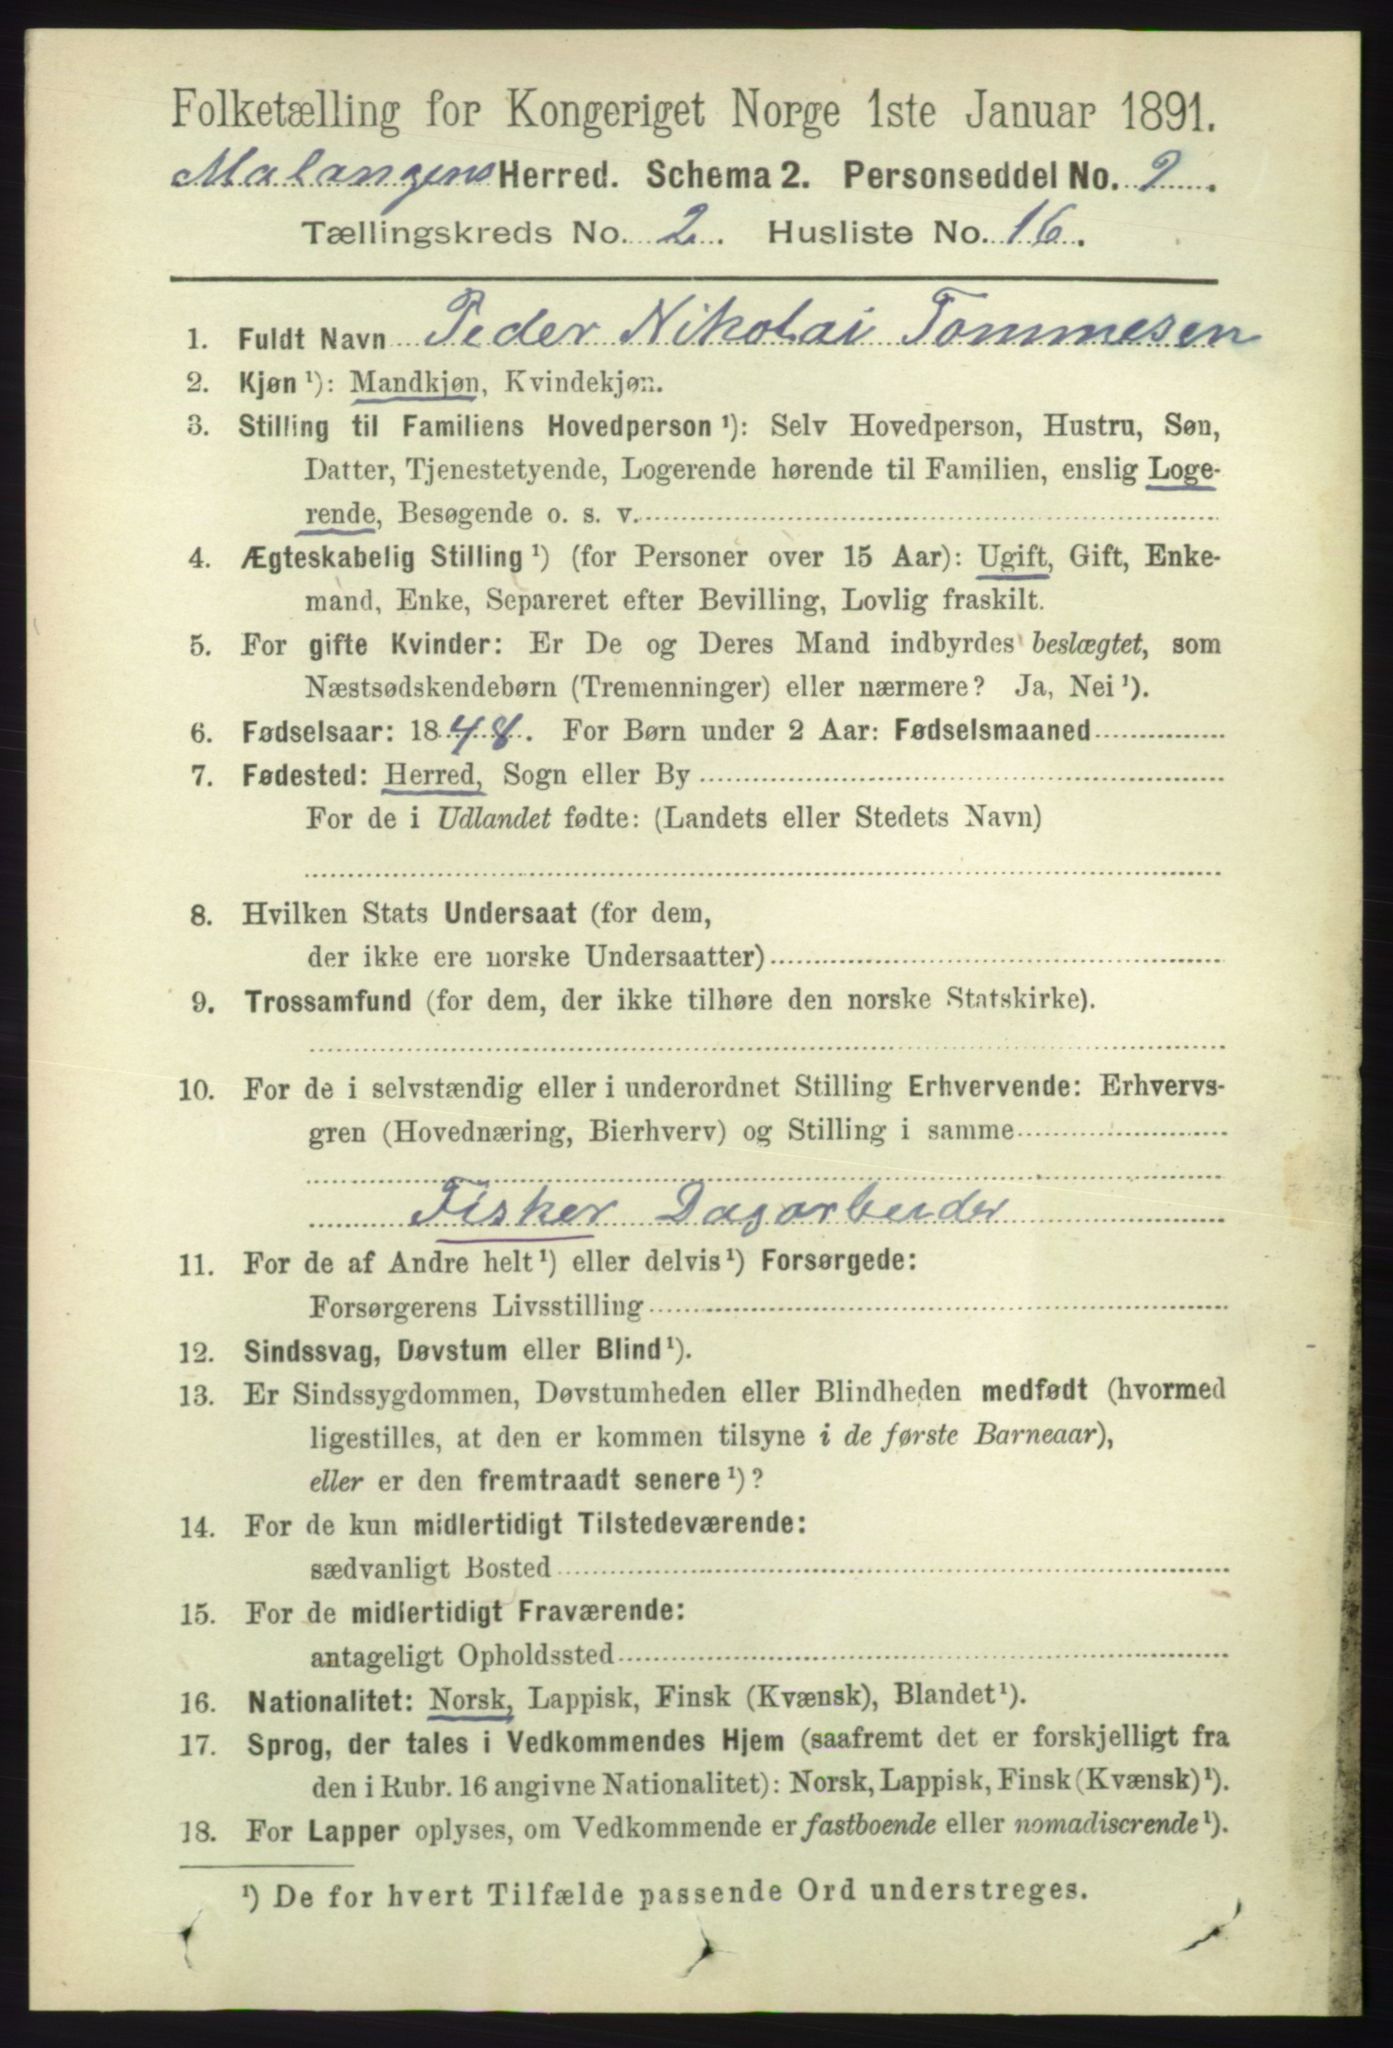 Folketælling for Kongeriget Norge 1ste Januar 1891.
Malangens Herred. Schema 2. Personseddel No. 2.
Tællingskreds No. 2. Husliste No. 16.
1. Fuldt Navn Peder Nikolai Tommesen
2. Kjøn ¹): Mandkjøn, Kvindekjøn.
3. Stilling til Familiens Hovedperson ¹): Selv Hovedperson, Hustru, Søn,
Datter, Tjenestetyende, Logerende hørende til Familien, enslig Loge-
rende, Besøgende o. s. v.
4. Ægteskabelig Stilling ¹) (for Personer over 15 Aar): Ugift, Gift, Enke-
mand, Enke, Separeret efter Bevilling, Lovlig fraskilt.
5. For gifte Kvinder: Er De og Deres Mand indbyrdes beslægtet, som
Næstsødskendebørn (Tremenninger) eller nærmere? Ja, Nei ¹).
6. Fødselsaar: 1848. For Børn under 2 Aar: Fødselsmaaned
7. Fødested: Herred, Sogn eller By
For de i Udlandet fødte: (Landets eller Stedets Navn)
8. Hvilken Stats Undersaat (for dem,
der ikke ere norske Undersaatter)
9. Trossamfund (for dem, der ikke tilhøre den norske Statskirke).
10. For de i selvstændig eller i underordnet Stilling Erhvervende: Erhvervs-
gren (Hovednæring, Bierhverv) og Stilling i samme
Fisker Dagarbeider
11. For de af Andre helt ¹) eller delvis ¹) Forsørgede:
Forsørgerens Livsstilling
12. Sindssvag, Døvstum eller Blind ¹).
13. Er Sindssygdommen, Døvstumheden eller Blindheden medfødt (hvormed
ligestilles, at den er kommen tilsyne i de første Barneaar),
eller er den fremtraadt senere ¹)?
14. For de kun midlertidigt Tilstedeværende:
sædvanligt Bosted
15. For de midlertidigt Fraværende:
antageligt Opholdssted
16. Nationalitet: Norsk, Lappisk, Finsk (Kvænsk), Blandet ¹).
17. Sprog, der tales i Vedkommendes Hjem (saafremt det er forskjelligt fra
den i Rubr. 16 angivne Nationalitet): Norsk, Lappisk, Finsk (Kvænsk) ¹).
18. For Lapper oplyses, om Vedkommende er fastboende eller nomadiserende ¹).
¹) De for hvert Tilfælde passende Ord understreges.